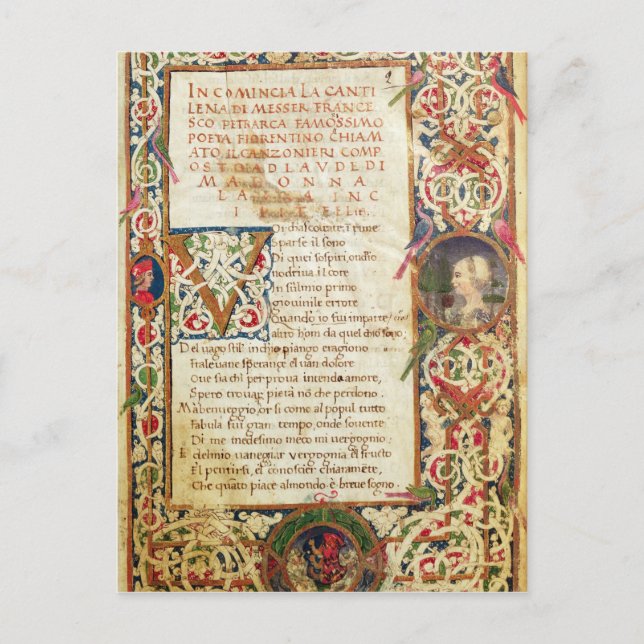 2
IN COMINCIA LA CANTI
LENA DI MESSER FRANCE
SCO PETRARCA FAMOSSIMO
POETA FIORENTINO CHIAM
ATO IL CANZONIERI COMP
OSTO AD LAVDE DI
MADONNA
LAVRA INC
IPIT FELI
VOi chascoltate ī rime
Sparse il sono
Di quei sospiri ondio
nodriua il core
In sulmio primo
giouinile errore
Quando io fui imparte
altro hom da quel chio sono
Del uago stil inchio piango eragiono
fra le uane sperançe el uan dolore
Oue sia chi per proua intenda amore,
Spero trouar pietà nō che perdono.
Ma ben ueggio or si come al popul tutto
fabula fui gran tempo, onde souente
Di me medesimo meco mi uergognio:
E delmio uanegiar uergognia el frusto
El pentirsi, el conoscier chiaramēte,
Che quāto piace almondo è breue sogno.